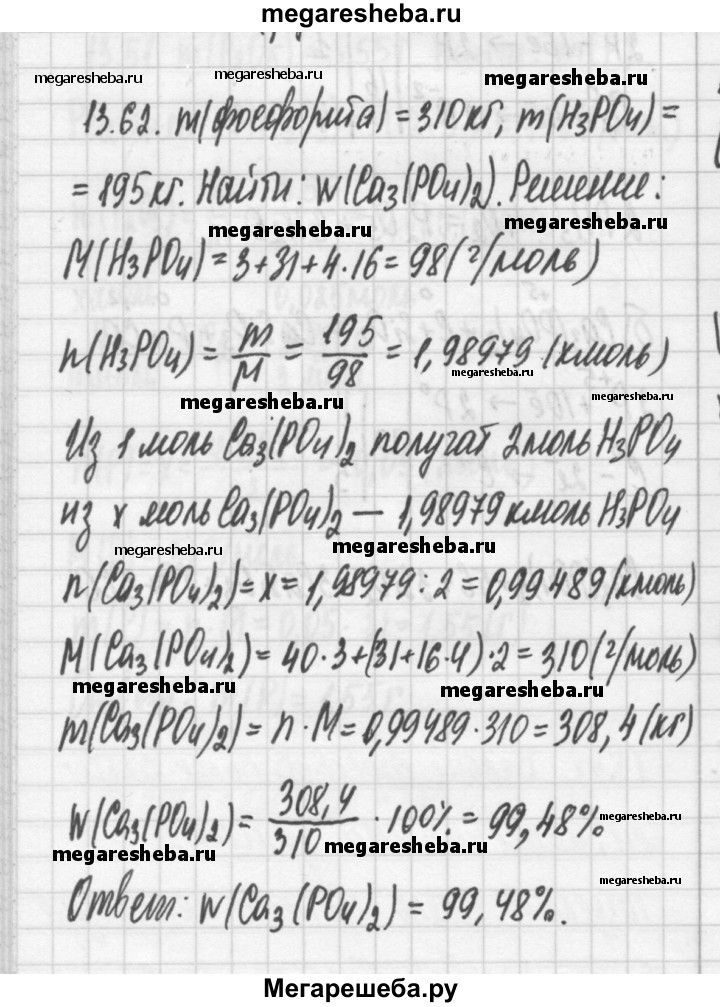 megaresheba.ru
megaresheba.ru megaresheba.ru megaresheba.ru
13.62. m(фосфорита) = 310 кг, m(H₃PO₄) =
= 195 кг. Найти: W(Ca₃(PO₄)₂). Решение:
megaresheba.ru megaresheba.ru
M(H₃PO₄) = 3+31+4·16 = 98 (г/моль)
n(H₃PO₄) = m/M = 195/98 = 1,98979 (кмоль)
megaresheba.ru megaresheba.ru megaresheba.ru
Из 1 моль Ca₃(PO₄)₂ получат 2 моль H₃PO₄
из x моль Ca₃(PO₄)₂ — 1,98979 кмоль H₃PO₄
megaresheba.ru megaresheba.ru
n(Ca₃(PO₄)₂) = x = 1,98979 : 2 = 0,99489 (кмоль)
M(Ca₃(PO₄)₂) = 40·3+(31+16·4)·2 = 310 (г/моль)
megaresheba.ru megaresheba.ru
m(Ca₃(PO₄)₂) = n·M = 0,99489·310 = 308,4 (кг)
W(Ca₃(PO₄)₂) = 308,4/310 · 100% = 99,48%
megaresheba.ru megaresheba.ru megaresheba.ru
Ответ: W(Ca₃(PO₄)₂) = 99,48%.
megaresheba.ru
Мегарешеба.ру